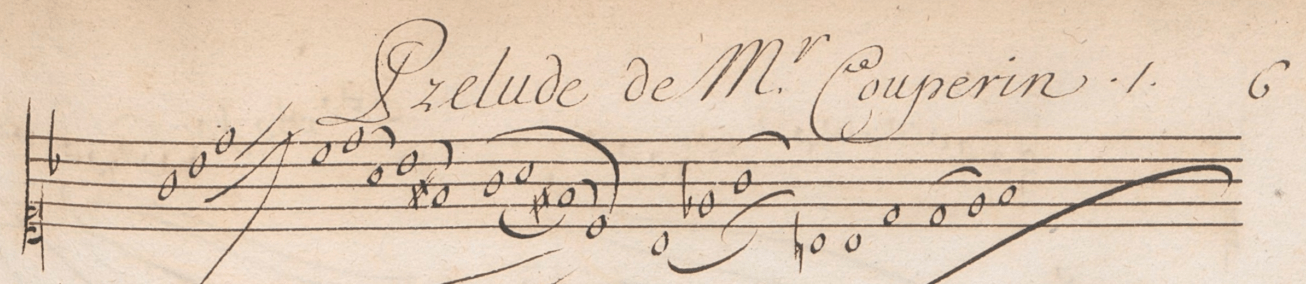 Prelude de Mr. Couperin · 1. 6